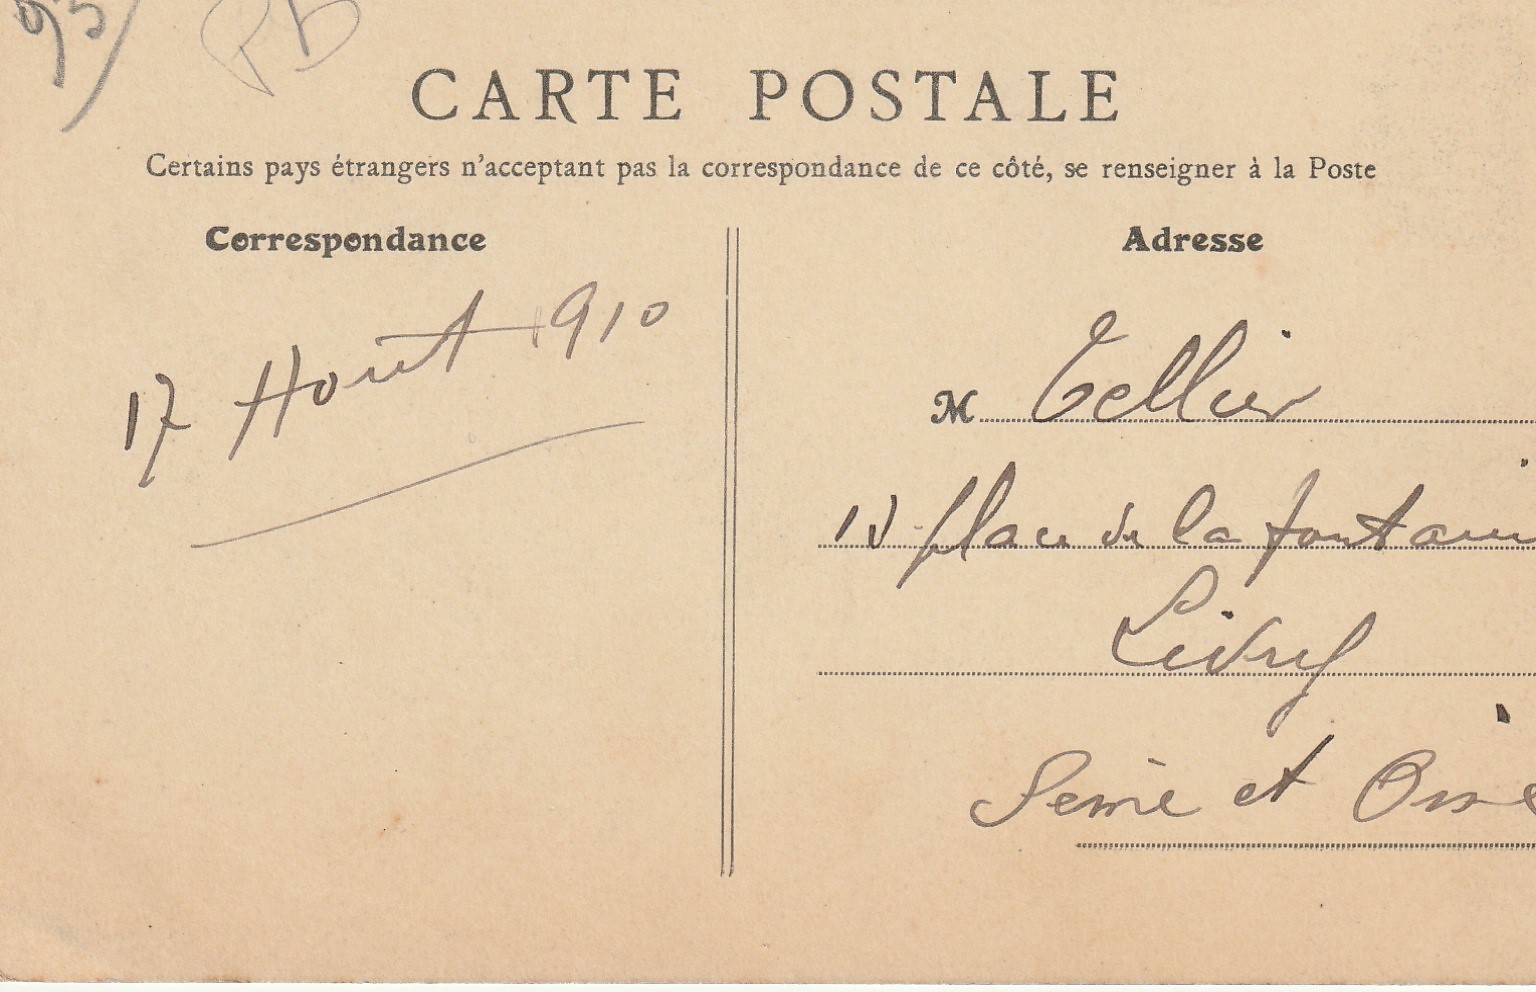 95
PB
CARTE POSTALE
Certains pays étrangers n'acceptant pas la correspondance de ce côté, se renseigner à la Poste
Correspondance
17 Août 1910
Adresse
M Tellier
place de la fontain
Livry
Seine et Oise